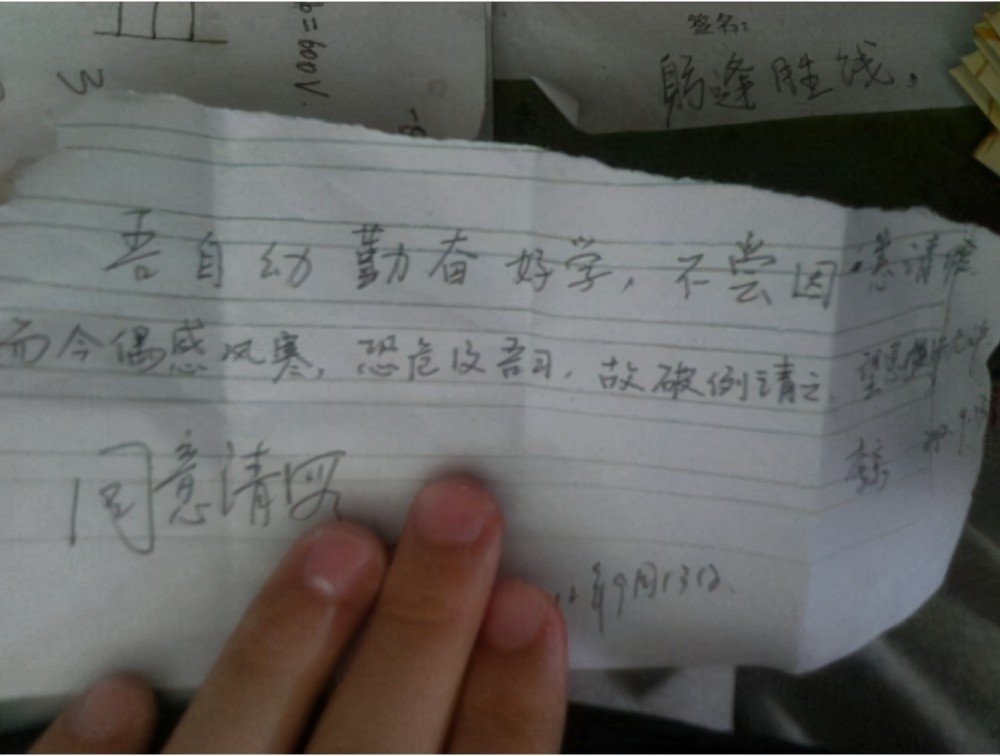 b=600V
签名:
躬逢胜饯,
吾自幼勤奋好学,不尝因
而今偶感风寒,恐危及吾司,故破例请之,
同意请假
年9月13日